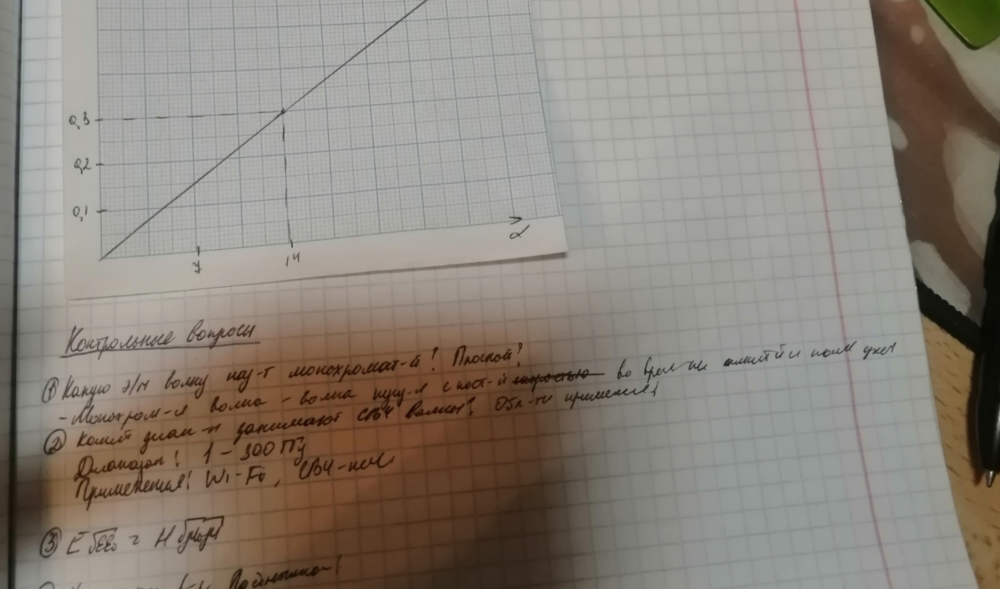 0,3
0,2
0,1
7
14
α
Контрольные вопросы
① Какую э/м волну наз-т монохромат-й? Плоской?
- Монохром-я волна - волна с пост-й во врем-ни
② Какой диап-н занимают СВЧ волны? Обл-ти применения?
Диапазон: 1 - 300 ГГц
Применения: Wi-Fi, СВЧ-печи
③ E√εε₀ = H√μ₀μ
Пойнтинга?